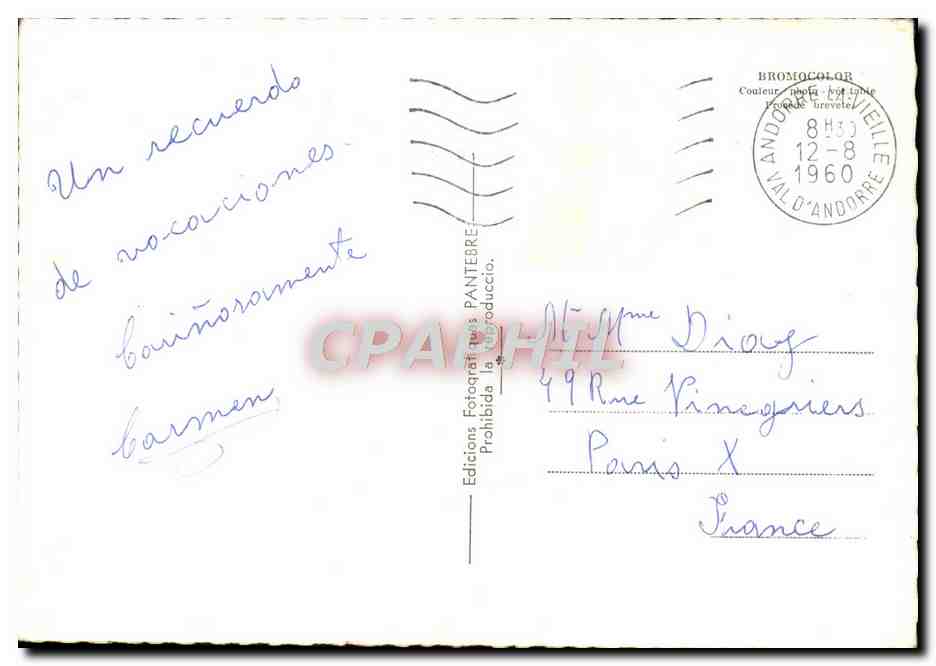 Un recuerdo
de vacaciones.
Cariñosamente
Carmen
BROMOCOLOR
Couleur photo - véritable
Procédé breveté
ANDORRE LA VIEILLE
8H30
12-8
1960
VAL D'ANDORRE
Edicions Fotogràfiques PANTEBRE
Prohibida la reproduccio.
CPAPHIL
Mme Diaz
49 Rue Vinegriers
Paris X
France